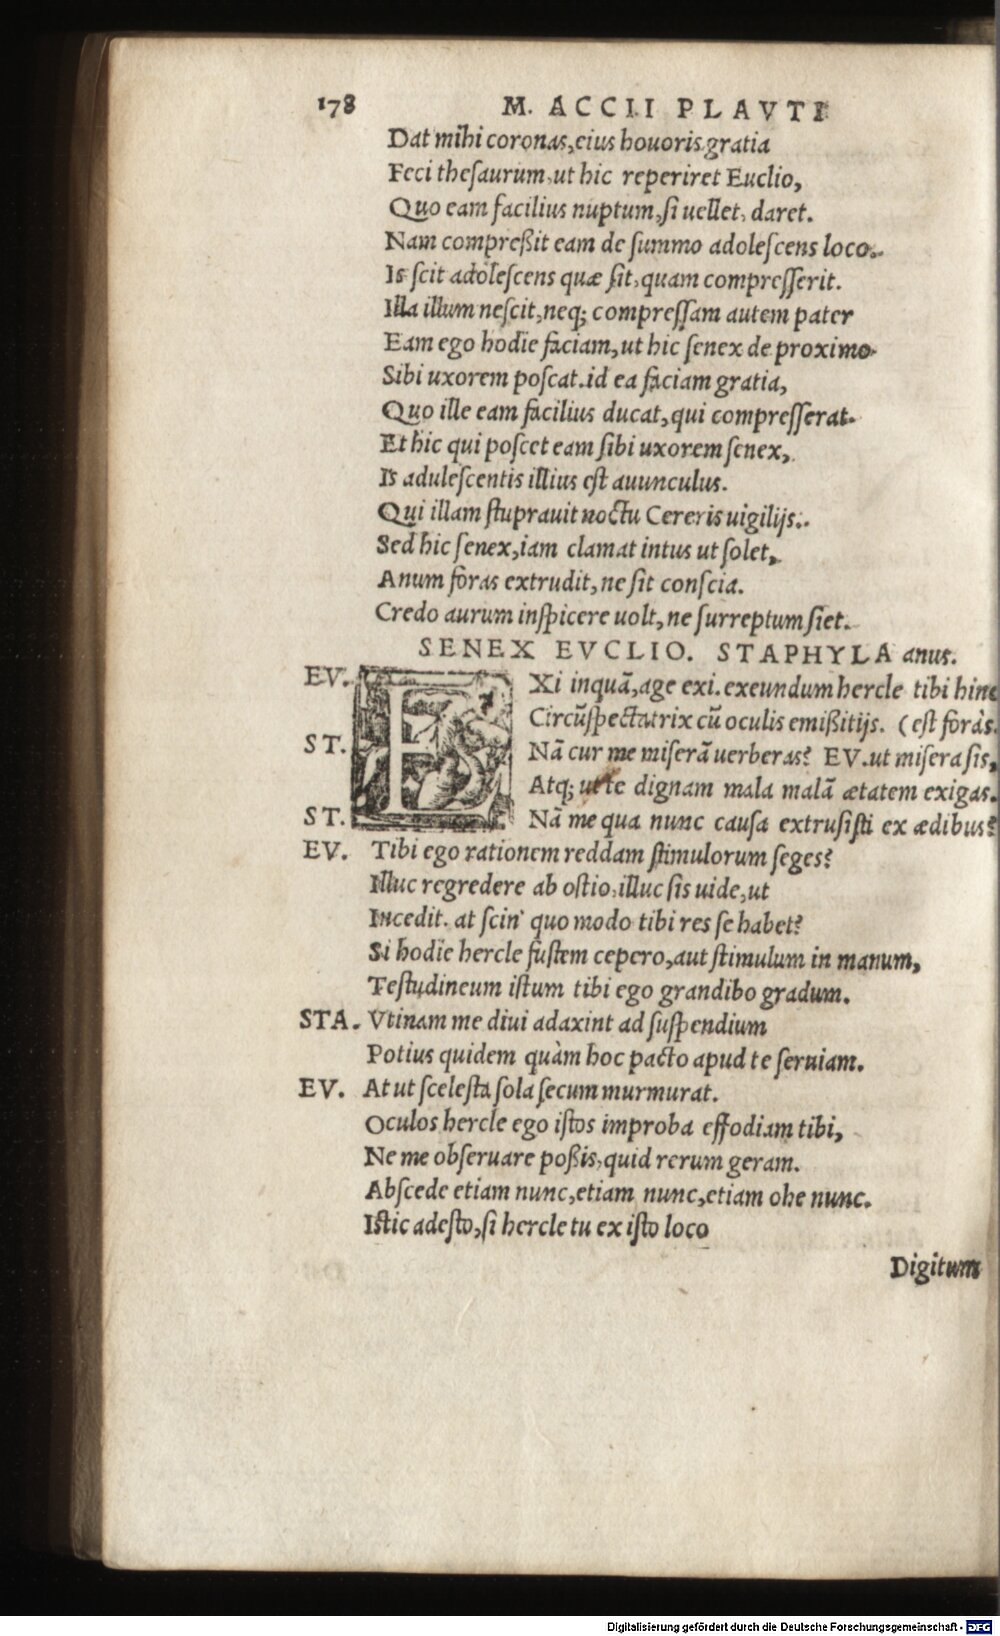 178 M. ACCII PLAVTI
Dat mihi coronas, eius houoris gratia
Feci theſaurum, ut hic reperiret Euclio,
Quo eam facilius nuptum, ſi uellet, daret.
Nam compreßit eam de ſummo adoleſcens loco.
Is ſcit adoleſcens quæ ſit, quam compreſſerit.
Illa illum neſcit, neq; compreſſam autem pater
Eam ego hodie faciam, ut hic ſenex de proximo
Sibi uxorem poſcat. id ea faciam gratia,
Quo ille eam facilius ducat, qui compreſſerat.
Et hic qui poſcet eam ſibi uxorem ſenex,
Is aduleſcentis illius eſt auunculus.
Qui illam ſtuprauit noctu Cereris uigilijs.
Sed hic ſenex, iam clamat intus ut ſolet,
Anum foras extrudit, ne ſit conſcia.
Credo aurum inſpicere uolt, ne ſurreptum ſiet.
SENEX EVCLIO. STAPHYLA anus.
EV. EXi inquã, age exi. exeundum hercle tibi hinc
Circũſpectatrix cũ oculis emißitijs. (eſt foràs.
ST. Nã cur me miſerã uerberas? EV. ut miſera ſis,
Atq; ut te dignam mala malã ætatem exigas.
ST. Nã me qua nunc cauſa extruſiſti ex ædibus?
EV. Tibi ego rationem reddam ſtimulorum ſeges?
Illuc regredere ab oſtio, illuc ſis uide, ut
Incedit. at ſcin' quo modo tibi res ſe habet?
Si hodie hercle fuſtem cepero, aut ſtimulum in manum,
Teſtudineum iſtum tibi ego grandibo gradum.
STA. Vtinam me diui adaxint ad ſuſpendium
Potius quidem quàm hoc pacto apud te ſeruiam.
EV. At ut ſceleſta ſola ſecum murmurat.
Oculos hercle ego iſtos improba effodiam tibi,
Ne me obſeruare poßis, quid rerum geram.
Abſcede etiam nunc, etiam nunc, etiam ohe nunc.
Iſtic adeſto, ſi hercle tu ex iſto loco
Digitum
Digitalisierung gefördert durch die Deutsche Forschungsgemeinschaft - DFG